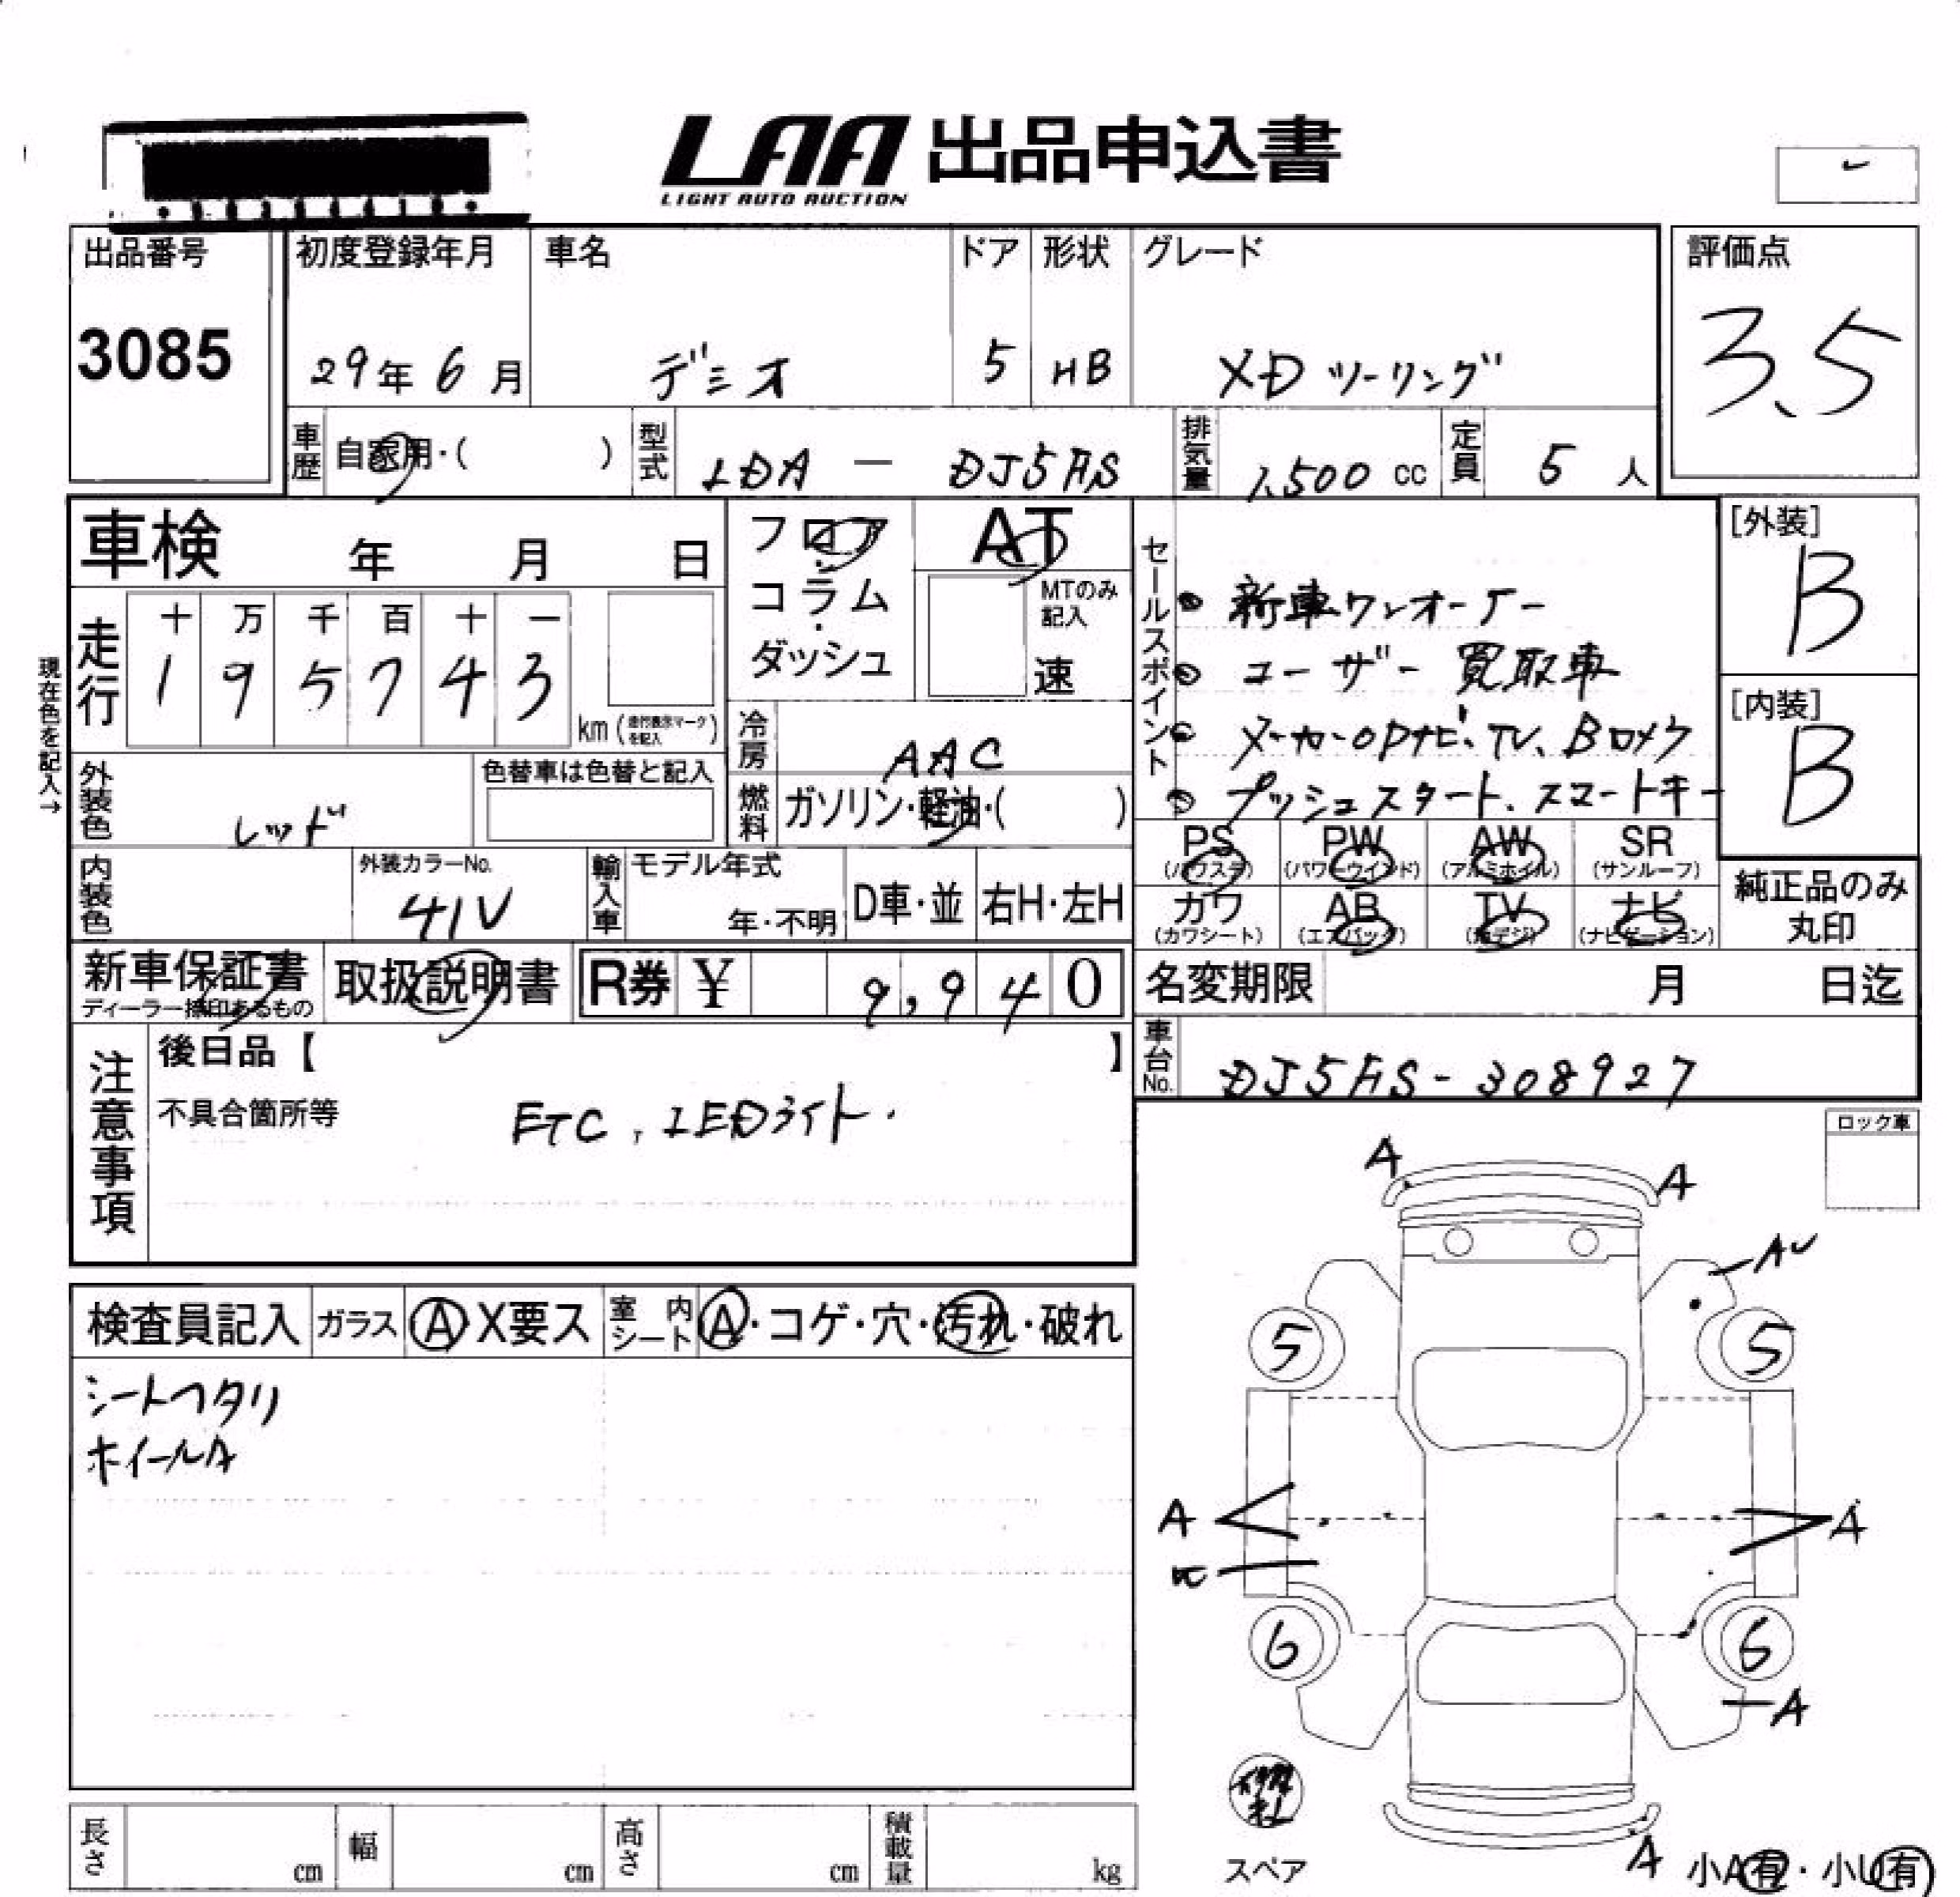 LAA 出品申込書
LIGHT AUTO AUCTION
出品番号 初度登録年月 車名 ドア 形状 グレード 評価点
3085 29年6月 デミオ 5 HB XD ツーリング 3.5
車歴 自家用・( ) 型式 LDA - DJ5AS 排気量 1,500 cc 定員 5 人
車検 年 月 日 フロア・コラム・ダッシュ AT
MTのみ記入 速
セールスポイント
● 新車ワンオーナー
● ユーザー買取車
● メーカーOPナビ、TV、Bカメラ
● プッシュスタート、スマートキー
[外装] B
[内装] B
現在色を記入→
走行 十 万 千 百 十 一
1 9 5 7 4 3 km (走行表示マークを記入)
冷房 AAC
外装色 レッド 色替車は色替と記入
燃料 ガソリン・軽油・( )
PS (パワステ) PW (パワーウインド) AW (アルミホイル) SR (サンルーフ)
カワ (カワシート) AB (エアバッグ) TV (地デジ) ナビ (ナビゲーション)
純正品のみ丸印
内装色 外装カラーNo. 41V 輸入車 モデル年式 年・不明 D車・並 右H・左H
新車保証書 ディーラー捺印あるもの 取扱説明書 R券 ¥ 9,940
名変期限 月 日迄
車台No. DJ5AS-308927
注意事項
後日品【 】
不具合箇所等 ETC、LEDライト.
ロック車
検査員記入 ガラス A X要ス 室内シート A・コゲ・穴・汚れ・破れ
シートヘタリ
ホイールA
A A
AU
5 5
A A
6 6
A
スペア
A 小A有・小U有
長さ cm 幅 cm 高さ cm 積載量 kg